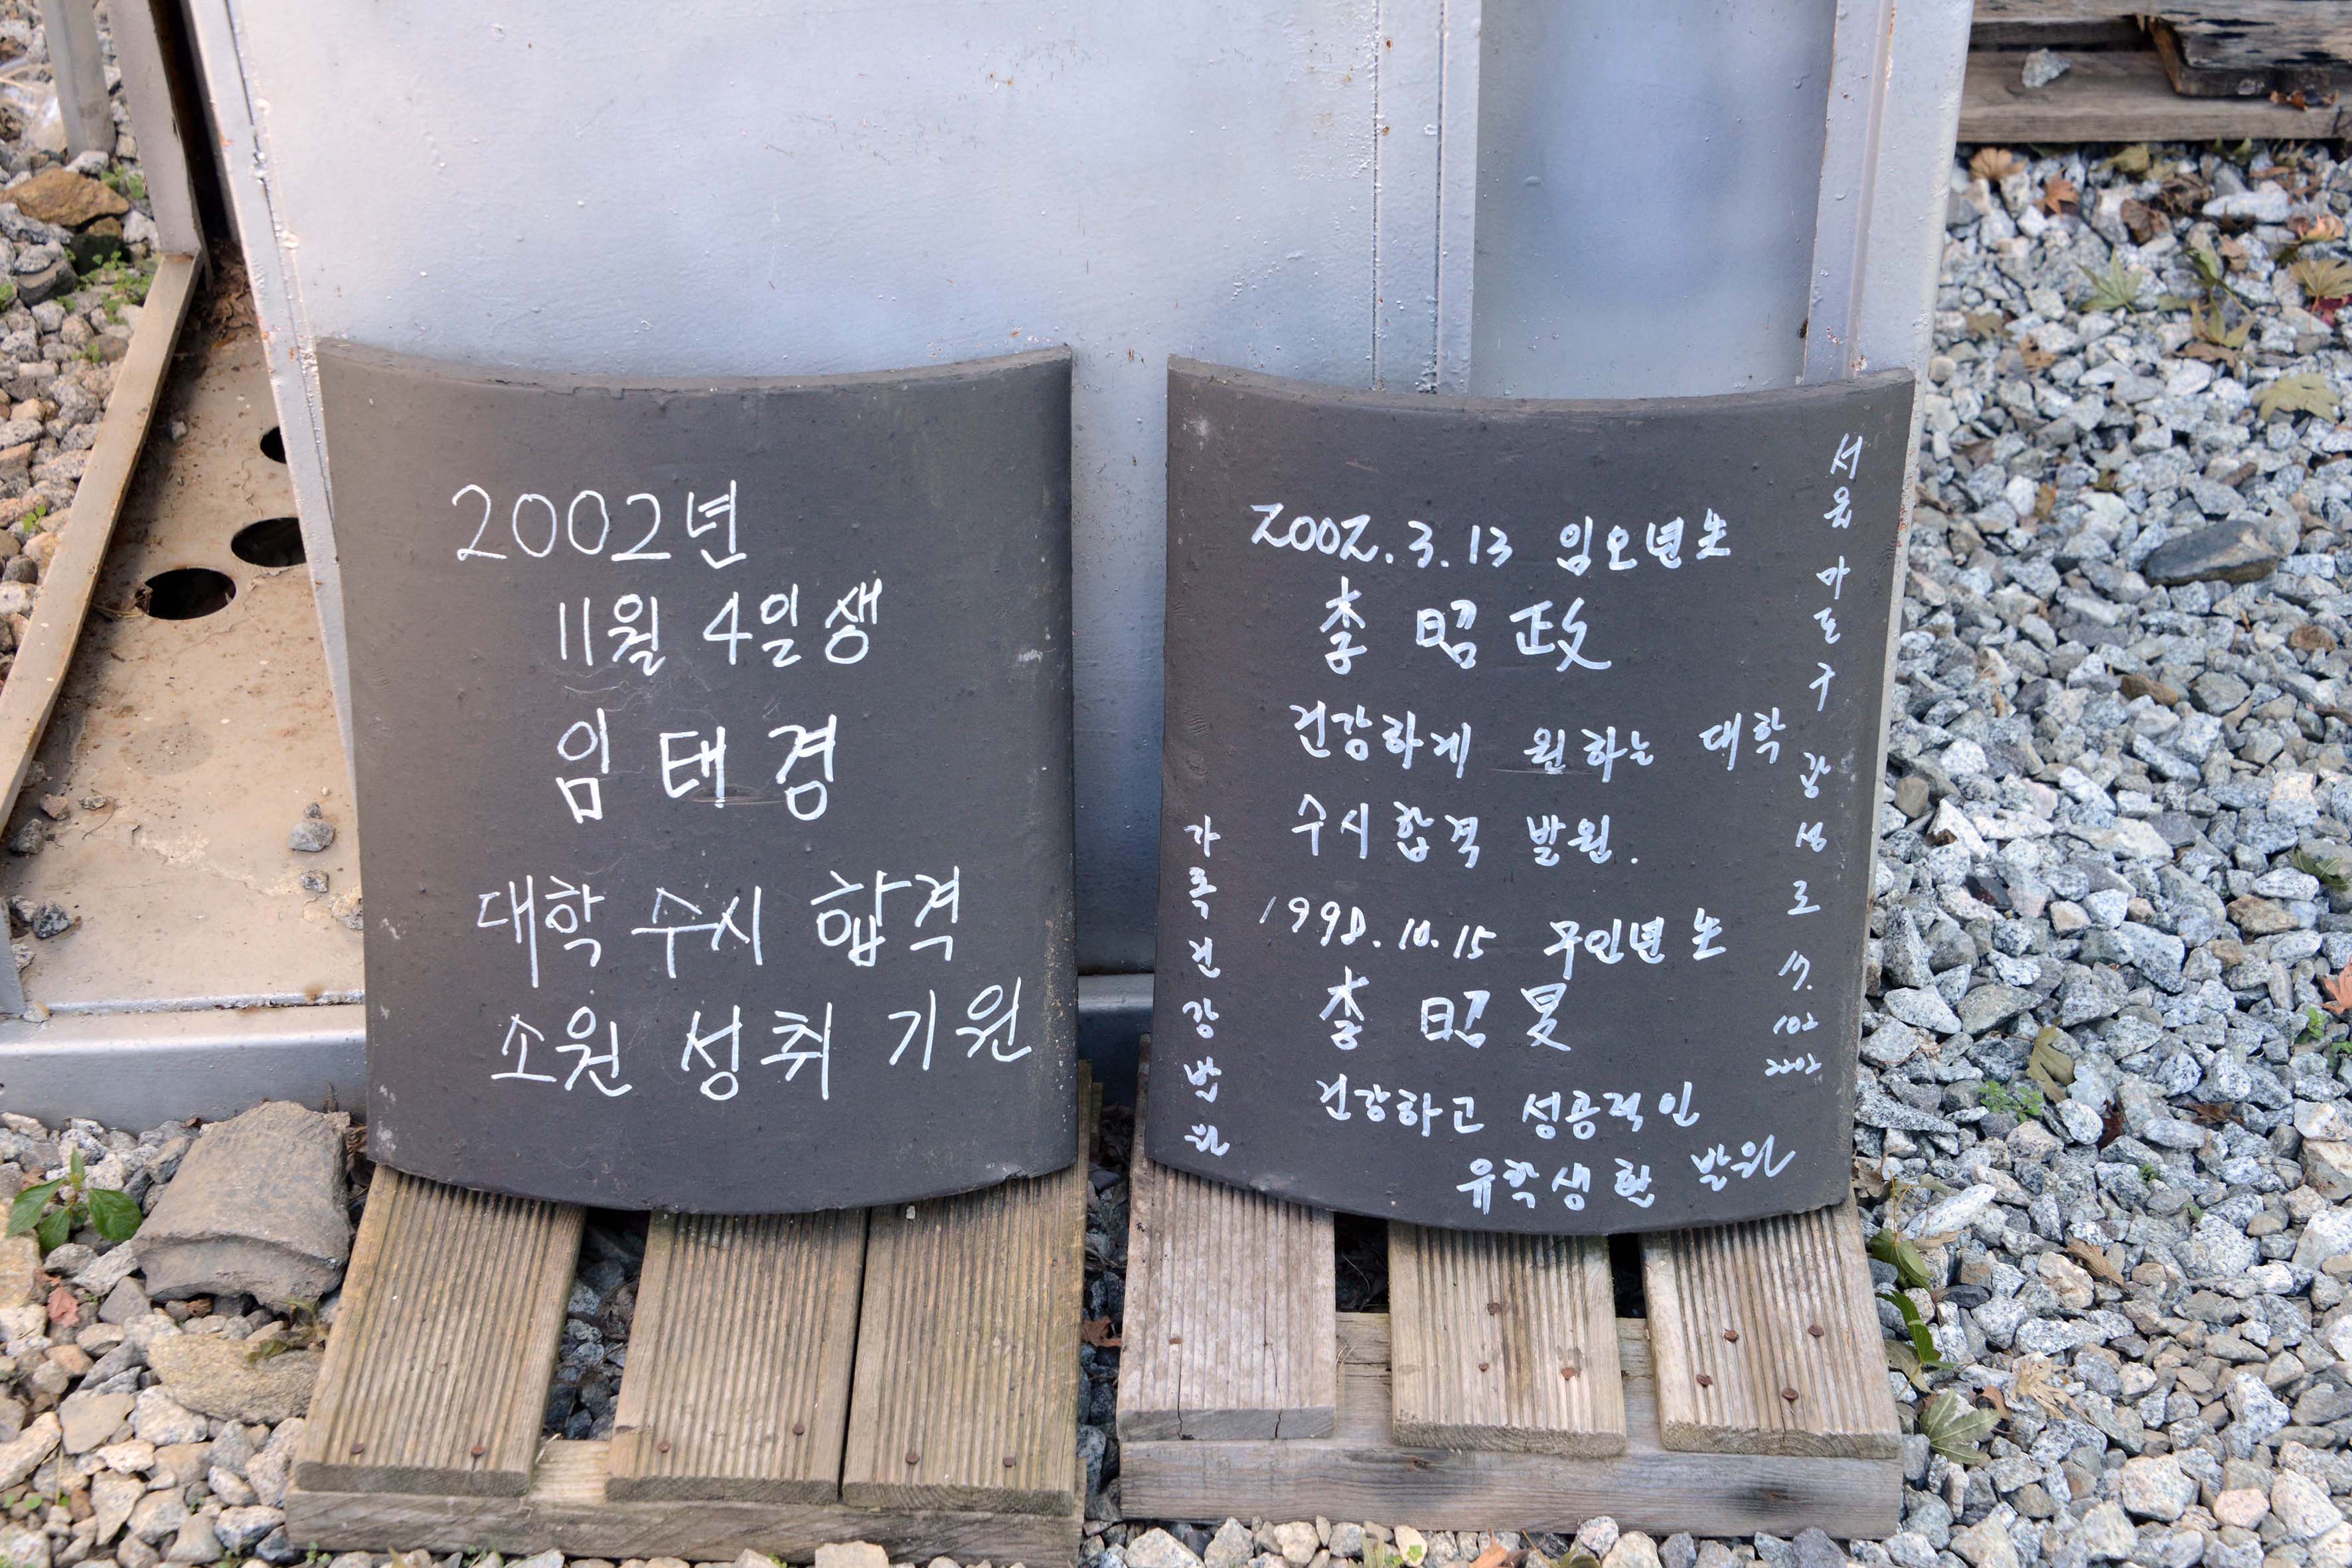 2002년
11월 4일생
임태경
대학 수시 합격
소원 성취 기원
2002.3.13 임오년生
李昭政
건강하게 원하는 대학
수시합격 발원.
1998.10.15 무인년生
李昭昊
건강하고 성공적인
유학생활 발원
서울 마포구 광성로 17. 102 2202
가족건강발원